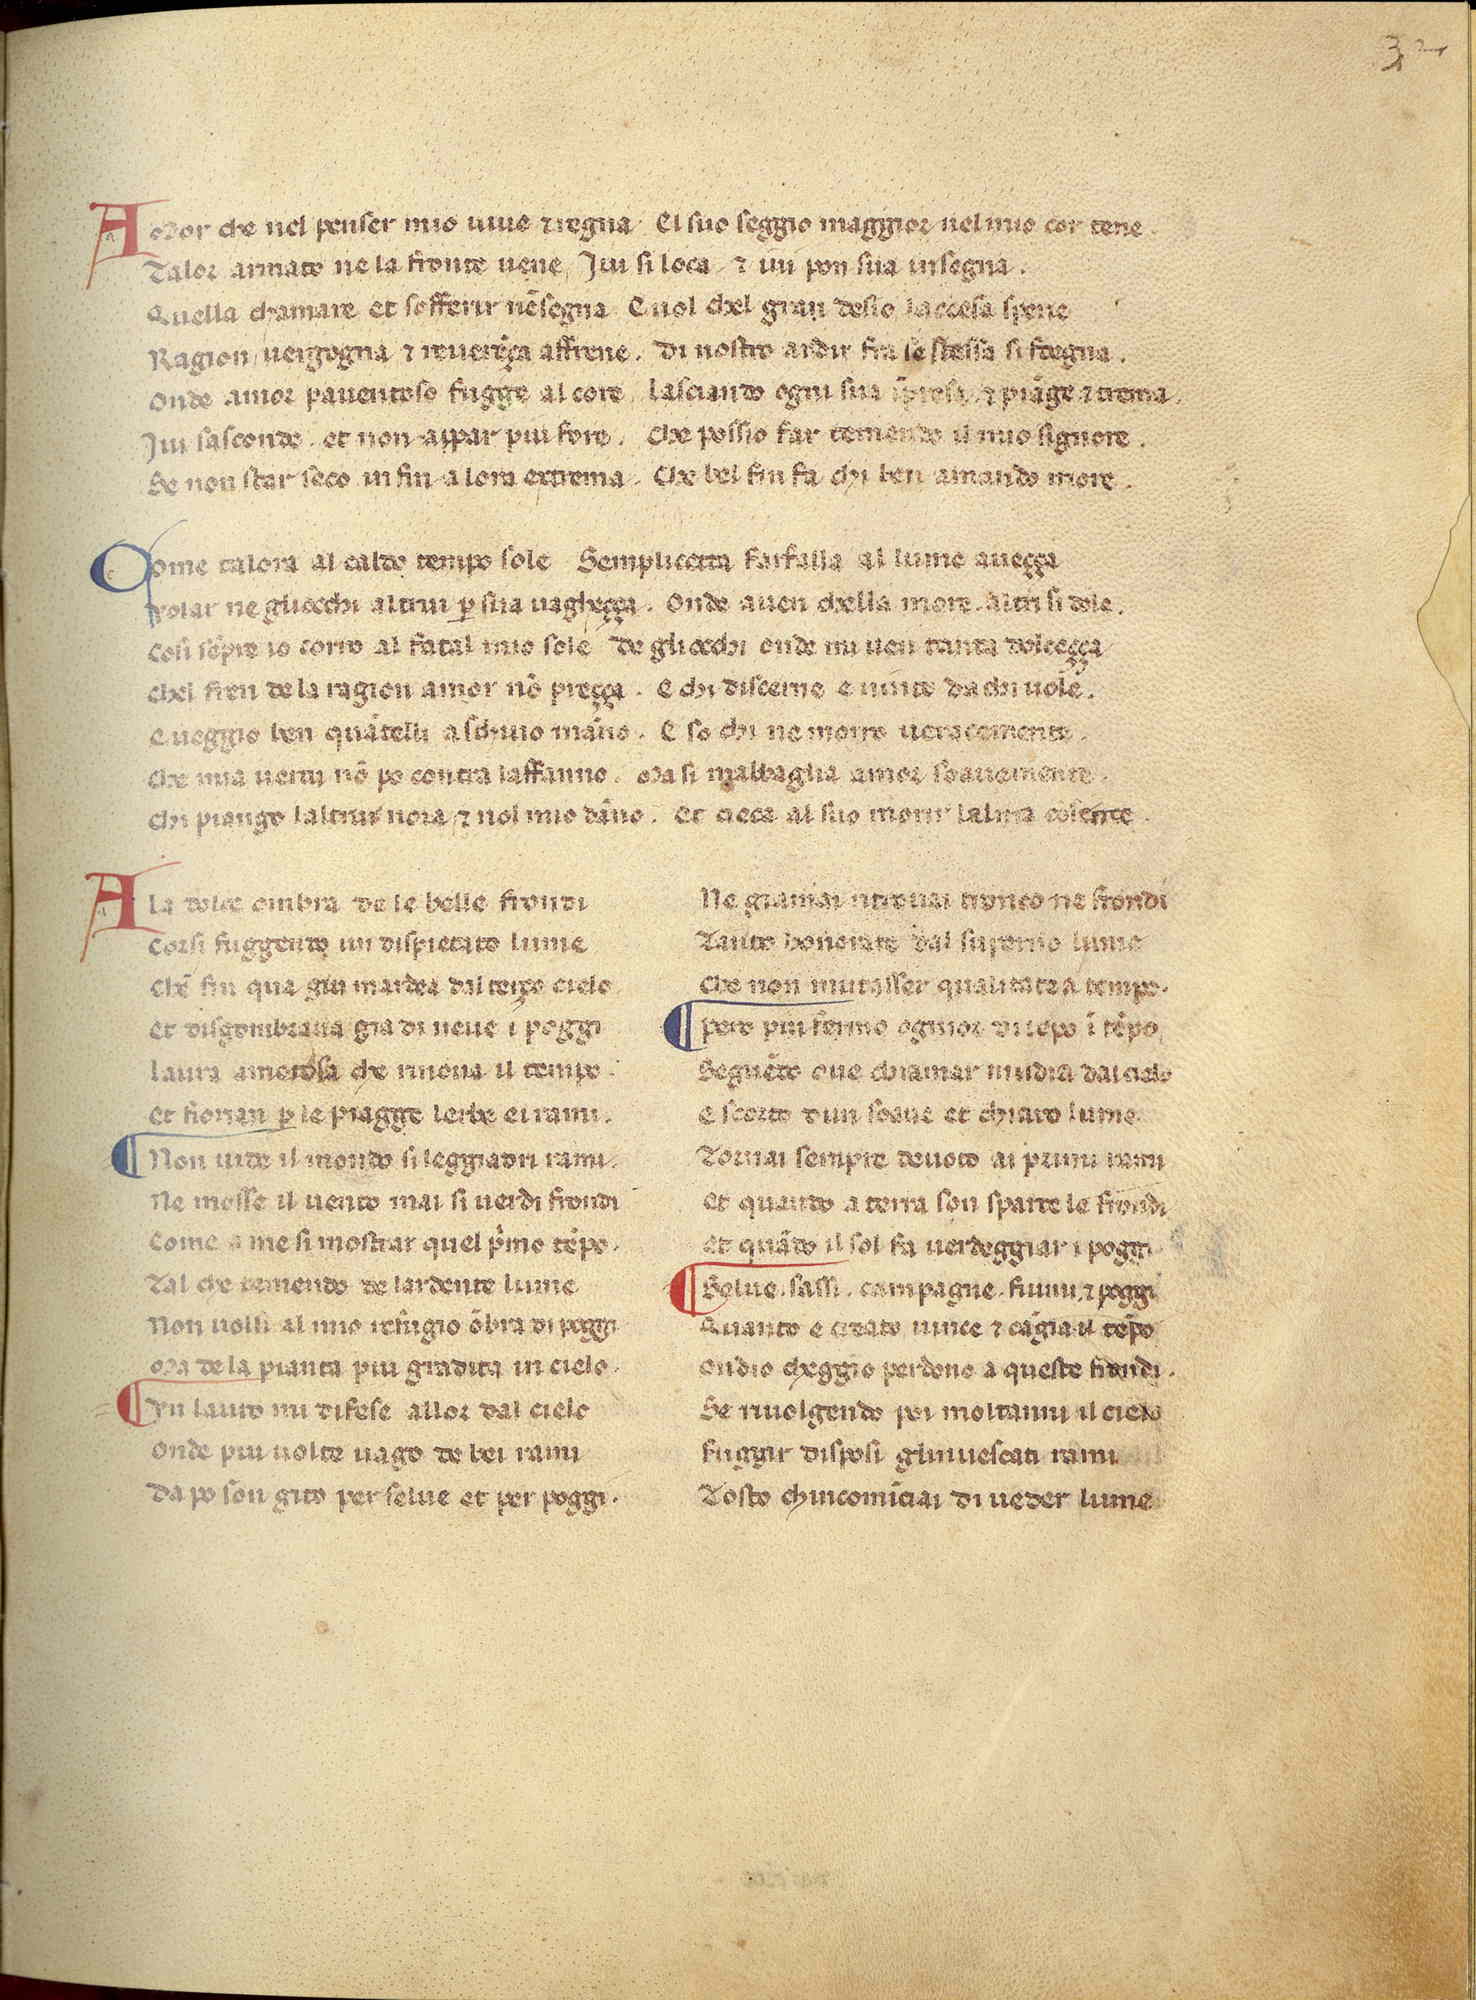 32
AMor che nel penser mio uiue ⁊ regna El suo seggio maggior nel mio cor tene.
Talor armato ne la fronte uene, Jui si loca, ⁊ iui pon sua insegna.
Quella chamare et sofferir nẽsegna E uol chel gran desio laccesa spene
Ragion, uergogna ⁊ reuerẽça affrene. Di nostro ardir fra se stessa si sdegna.
Onde amor pauentoso fugge al core, lasciando ogni sua ĩpresa, ⁊ piãge ⁊ trema.
Jui sasconde. et non appar piu fore. Che possio far temendo il mio signore.
Se non star seco in fin a lora extrema. Che bel fin fa chi ben amando more.
Come talora al caldo tempo sole Semplicetta farfalla al lume aueçça
Volar ne gliocchi altrui ꝑ sua uagheçça. Onde auen chella more. altri si dole.
Cosi sẽpre io corro al fatal mio sole De gliocchi onde mi uen tanta dolceçça
Chel fren de la ragion amor nõ preçça. E chi discerne e uinto da chi uole.
E ueggio ben quãtelli a schiuo mãno. E so chi ne morro ueracemente.
Che mia uertu nõ po contra laffanno. Ma si mabbaglia amor soauemente.
Chi piango laltrui noia ⁊ nol mio dãno. Et cieca al suo morir lalma cosente.
A la dolce ombra de le belle frondi
Corsi fuggendo un dispietato lume
Chẽ fin qua giu mardea dal terzo cielo
Et disgombraua gia di neue i poggi
Laura amorosa che rinoua il tempo.
Et fiorian ꝑ le piagge lerbe ei rami.
Non uide il mondo si leggiadri rami.
Ne mosse il uento mai si uerdi frondi
Come a me si mostrar quel pͥmo tẽpo.
Tal che temendo de lardente lume
Non uolsi al mio refugio õbra di poggi
Ma de la pianta piu gradita in cielo.
Vn lauro mi difese allor dal cielo
Onde piu uolte uago de bei rami
Da po son gito per selue et per poggi.
Ne giamai ritrouai tronco ne frondi
Tanto honorate dal superno lume
Che non mutasser qualitate a tempo.
Pero piu fermo ognior di tẽpo ĩ tẽpo
Seguẽdo oue chiamar mudia dal cielo
E scorto dun soaue et chiaro lume
Tornai sempre deuoto ai primi rami
Et quando a terra son sparte le frondi
Et quãdo il sol fa uerdeggiar i poggi
Selue. sassi. campagne. fiumi, ⁊ poggi
Quanto e creato uince ⁊ cãgia il tẽpo
Ondio cheggio perdono a queste frondi.
Se riuolgendo poi moltanni il cielo
Fuggir disposi glinuescati rami
Tosto chincomĩciai di ueder lume